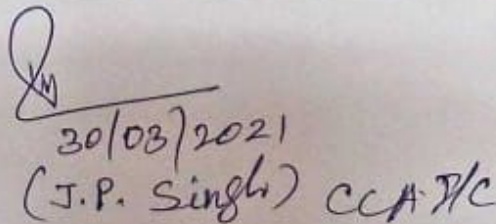 30/03/2021
(J.P. Singh) CCA I/C